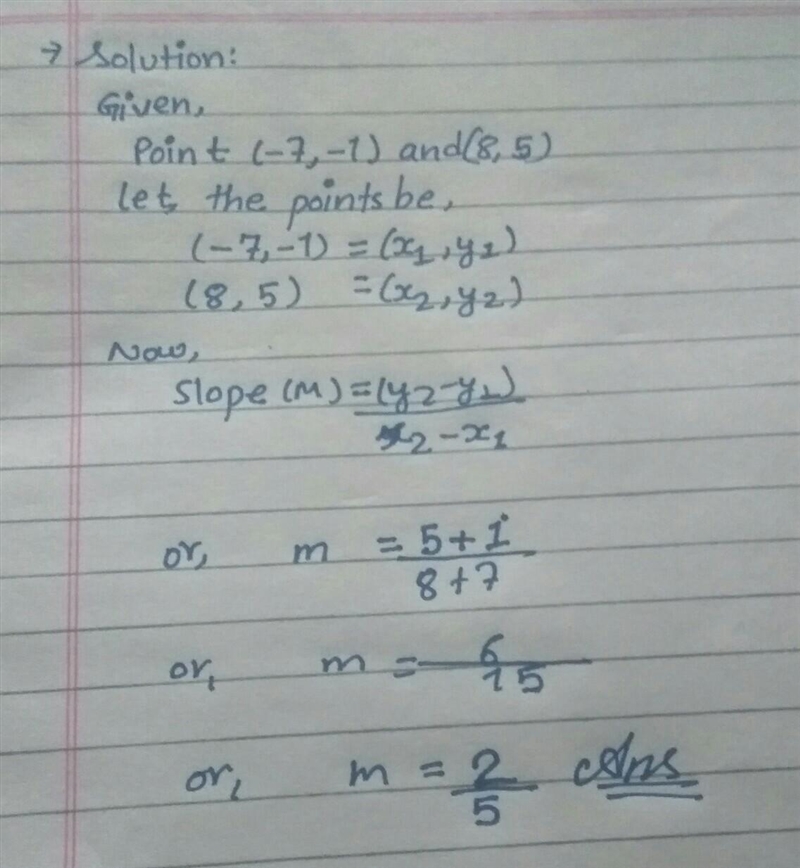 → Solution:
Given,
Point (-7,-1) and(8,5)
let, the points be,
(-7,-1) = (x1,y1)
(8,5) = (x2,y2)
Now,
Slope (M) = (y2-y1)
x2-x1
or, m = 5+1
8+7
or, m = 6
15
or, m = 2 Ans
5